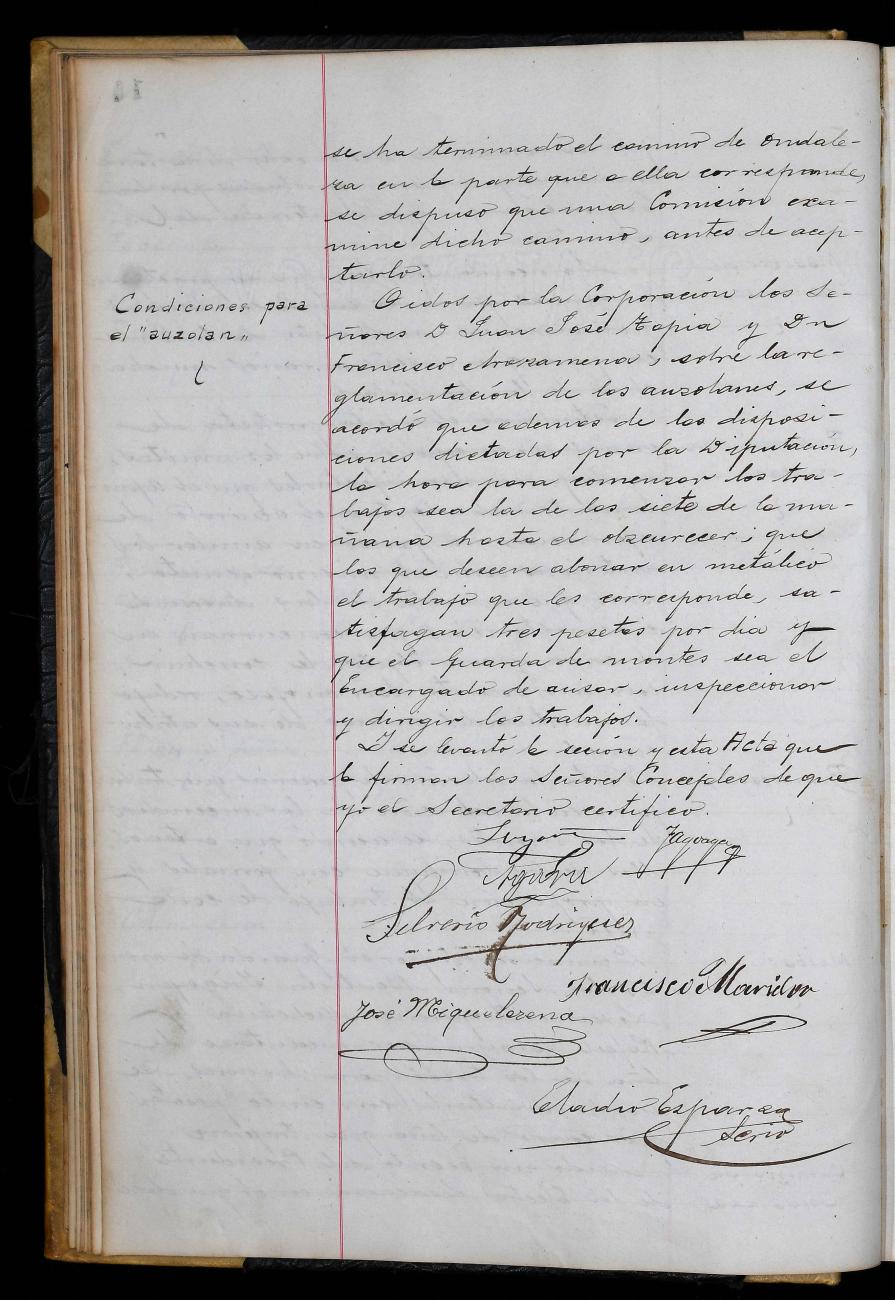 se ha terminado el camino de Ondale-
ra en la parte que a ella corresponde,
se dispuso que una Comisión exa-
mine dicho camino, antes de acep-
tarlo.
Condiciones para
el "auzolan"
Oidos por la Corporación los Se-
ñores D Juan José Tapia y Dn
Francisco Arozamena, sobre la re-
glamentación de los auzolanes, se
acordó que ademas de las disposi-
ciones dictadas por la Diputación,
la hora para comenzar los tra-
bajos sea la de las siete de la ma-
ñana hasta el obscurecer; que
los que deseen abonar en metálico
el trabajo que les corresponde, sa-
tisfagan tres pesetas por dia y
que el Guarda de montes sea el
Encargado de avisar, inspeccionar
y dirigir los trabajos.
Y se levantó la sesión y esta Acta que
la firman los Señores Concejales de que
yo el Secretario certifico.
Silverio Rodriguez
José Miguelezena
Eladio Esparza
Serio